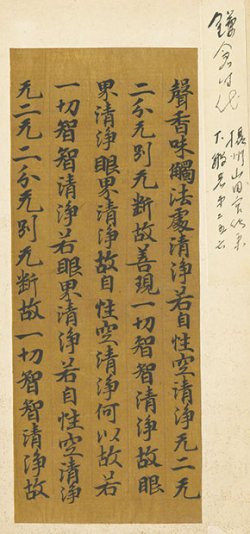 鎌倉时代
大般若
聲香味觸法處清淨若自性空清淨无二无
二分无別无断故善現一切智智清淨故眼
界清淨眼界清淨故自性空清淨何以故若
一切智智清淨若眼界清淨若自性空清淨
无二无二分无別无断故一切智智清淨故